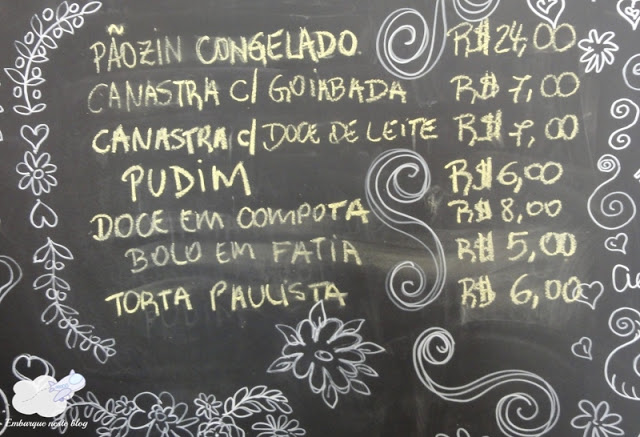 PÃOZIN CONGELADO R$ 24,00
CANASTRA C/ GOIABADA R$ 7,00
CANASTRA C/ DOCE DE LEITE R$ 7,00
PUDIM R$ 6,00
DOCE EM COMPOTA R$ 8,00
BOLO EM FATIA R$ 5,00
TORTA PAULISTA R$ 6,00
Embarque neste blog